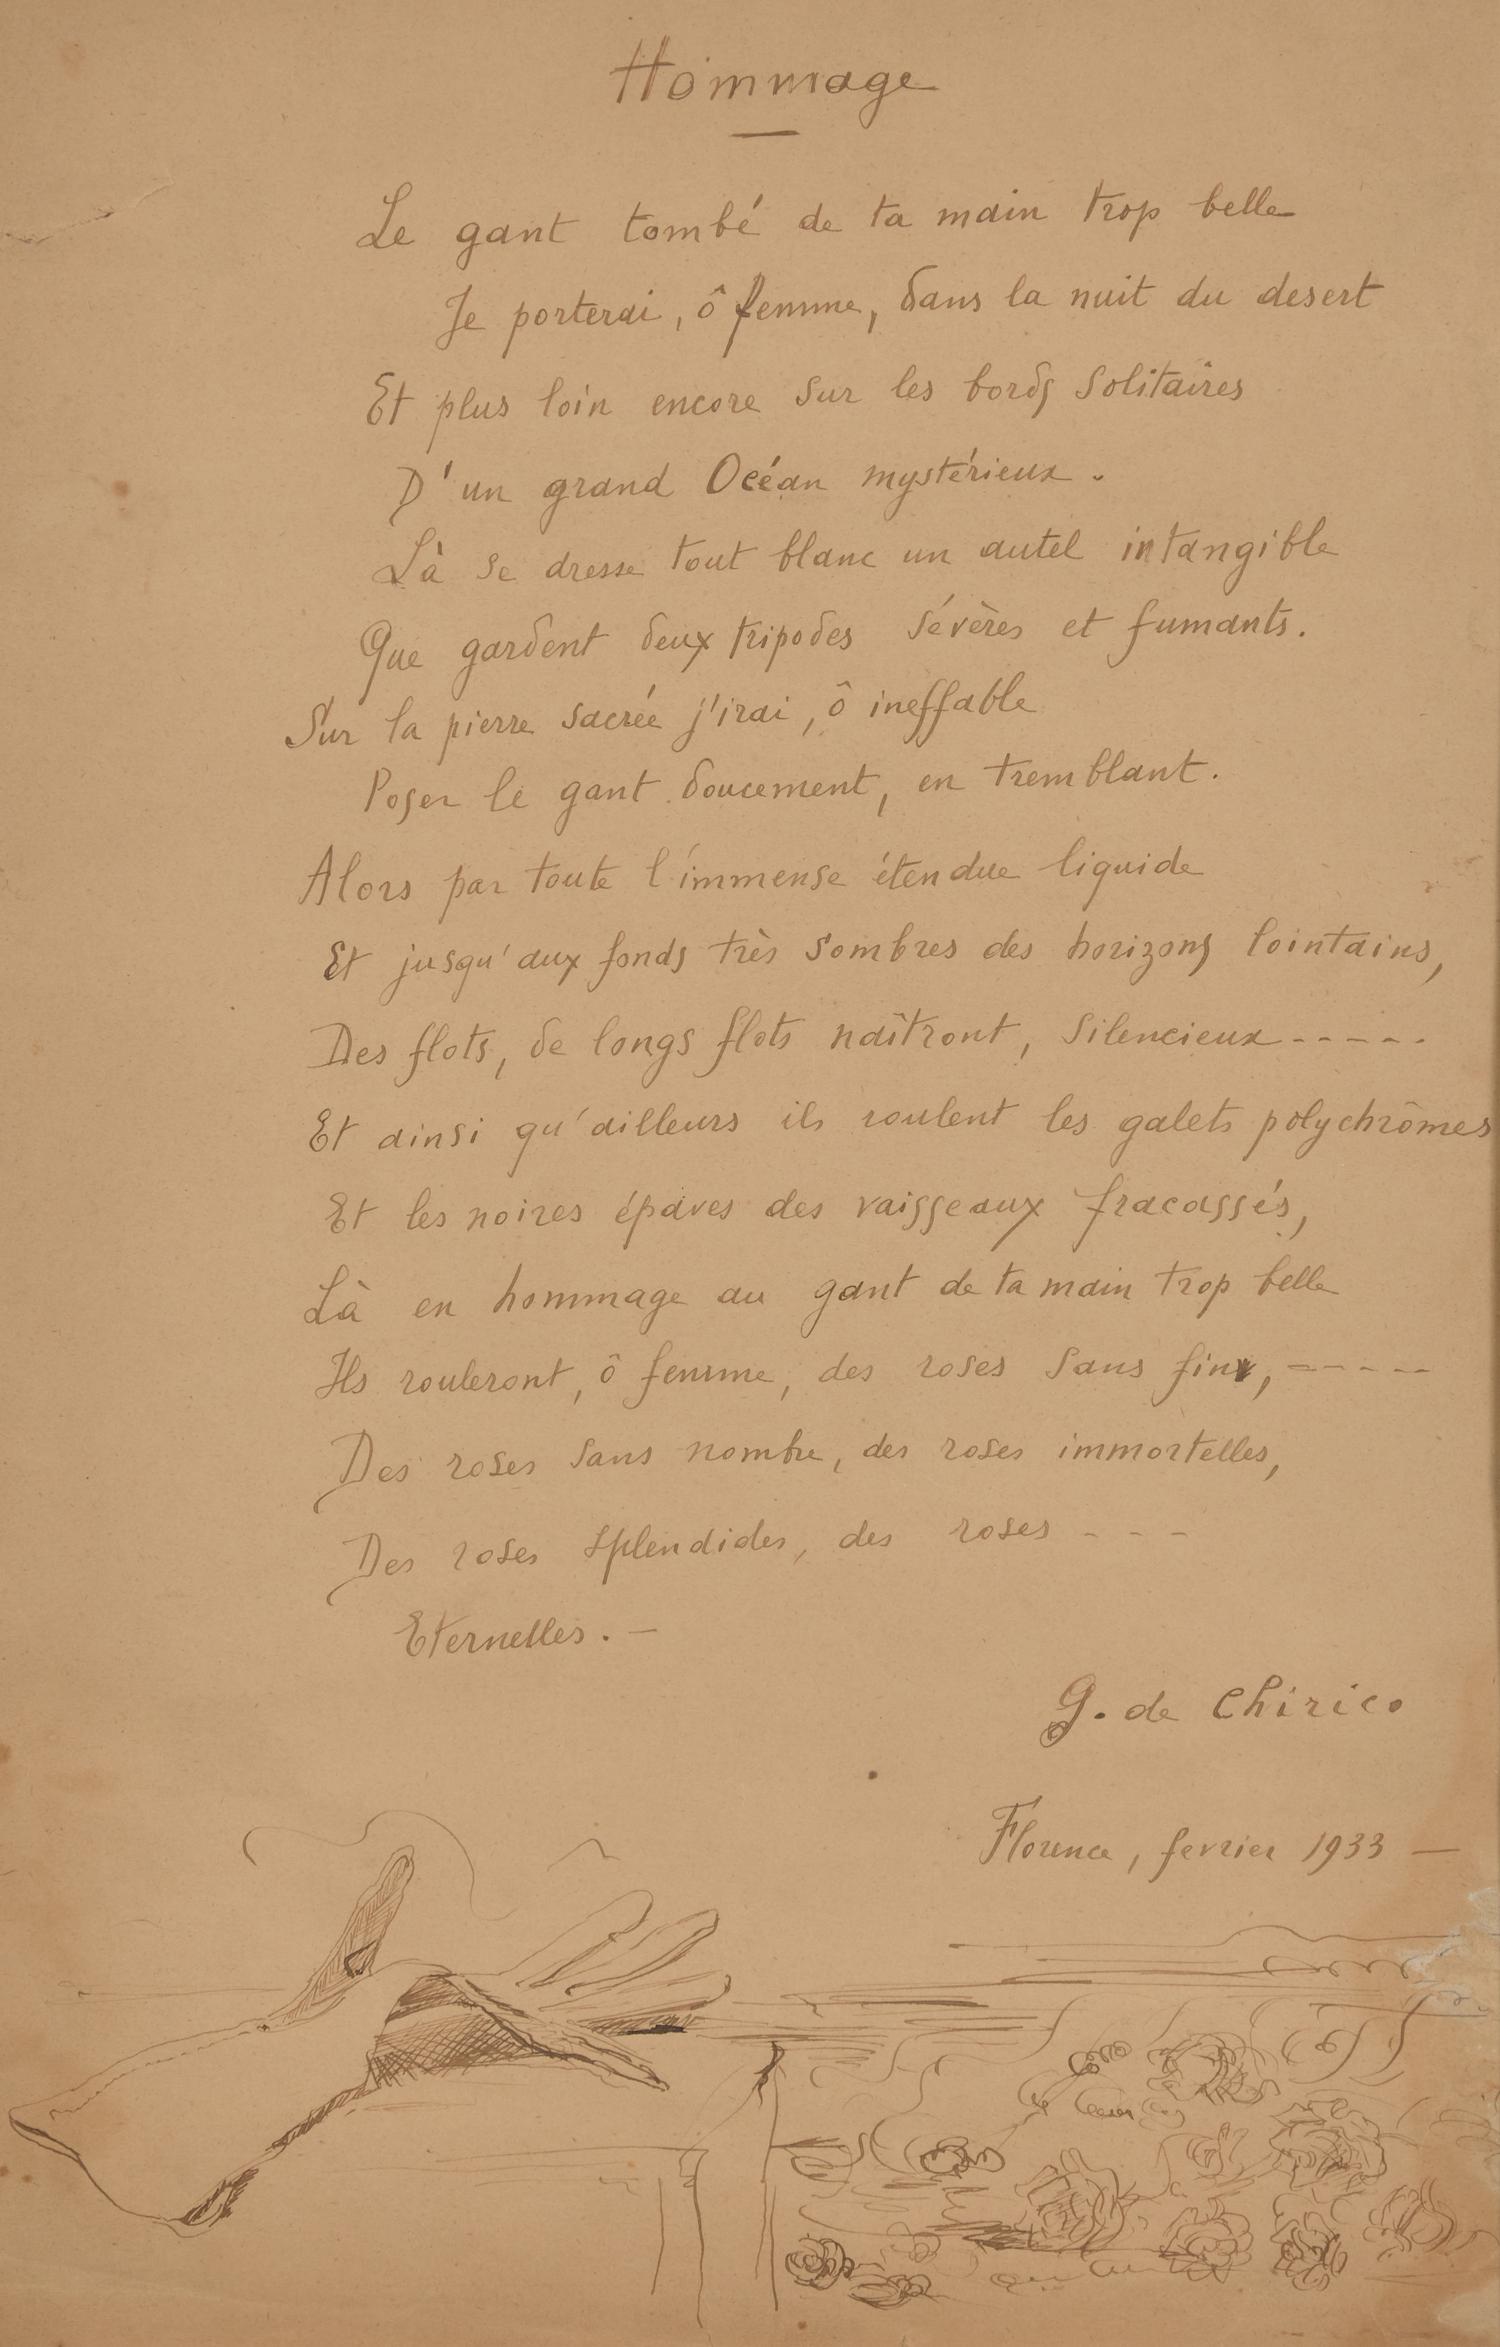 Hommage
Le gant tombé de ta main trop belle
Je porterai, ô femme, dans la nuit du desert
Et plus loin encore sur les bords solitaires
D'un grand Océan mystérieux.
Là se dresse tout blanc un autel intangible
Que gardent deux tripodes sévères et fumants.
Sur la pierre sacrée j'irai, ô ineffable
Poser le gant doucement, en tremblant.
Alors par toute l'immense étendue liquide
Et jusqu'aux fonds très sombres des horizons lointains,
Des flots, de longs flots naîtront, silencieux-----
Et ainsi qu'ailleurs ils roulent les galets polychrômes
Et les noires épaves des vaisseaux fracassés,
Là en hommage au gant de ta main trop belle
Ils rouleront, ô femme, des roses sans fin, -----
Des roses sans nombre, des roses immortelles,
Des roses splendides, des roses - - -
Eternelles. -
G. de Chirico
Florence, fevrier 1933 -